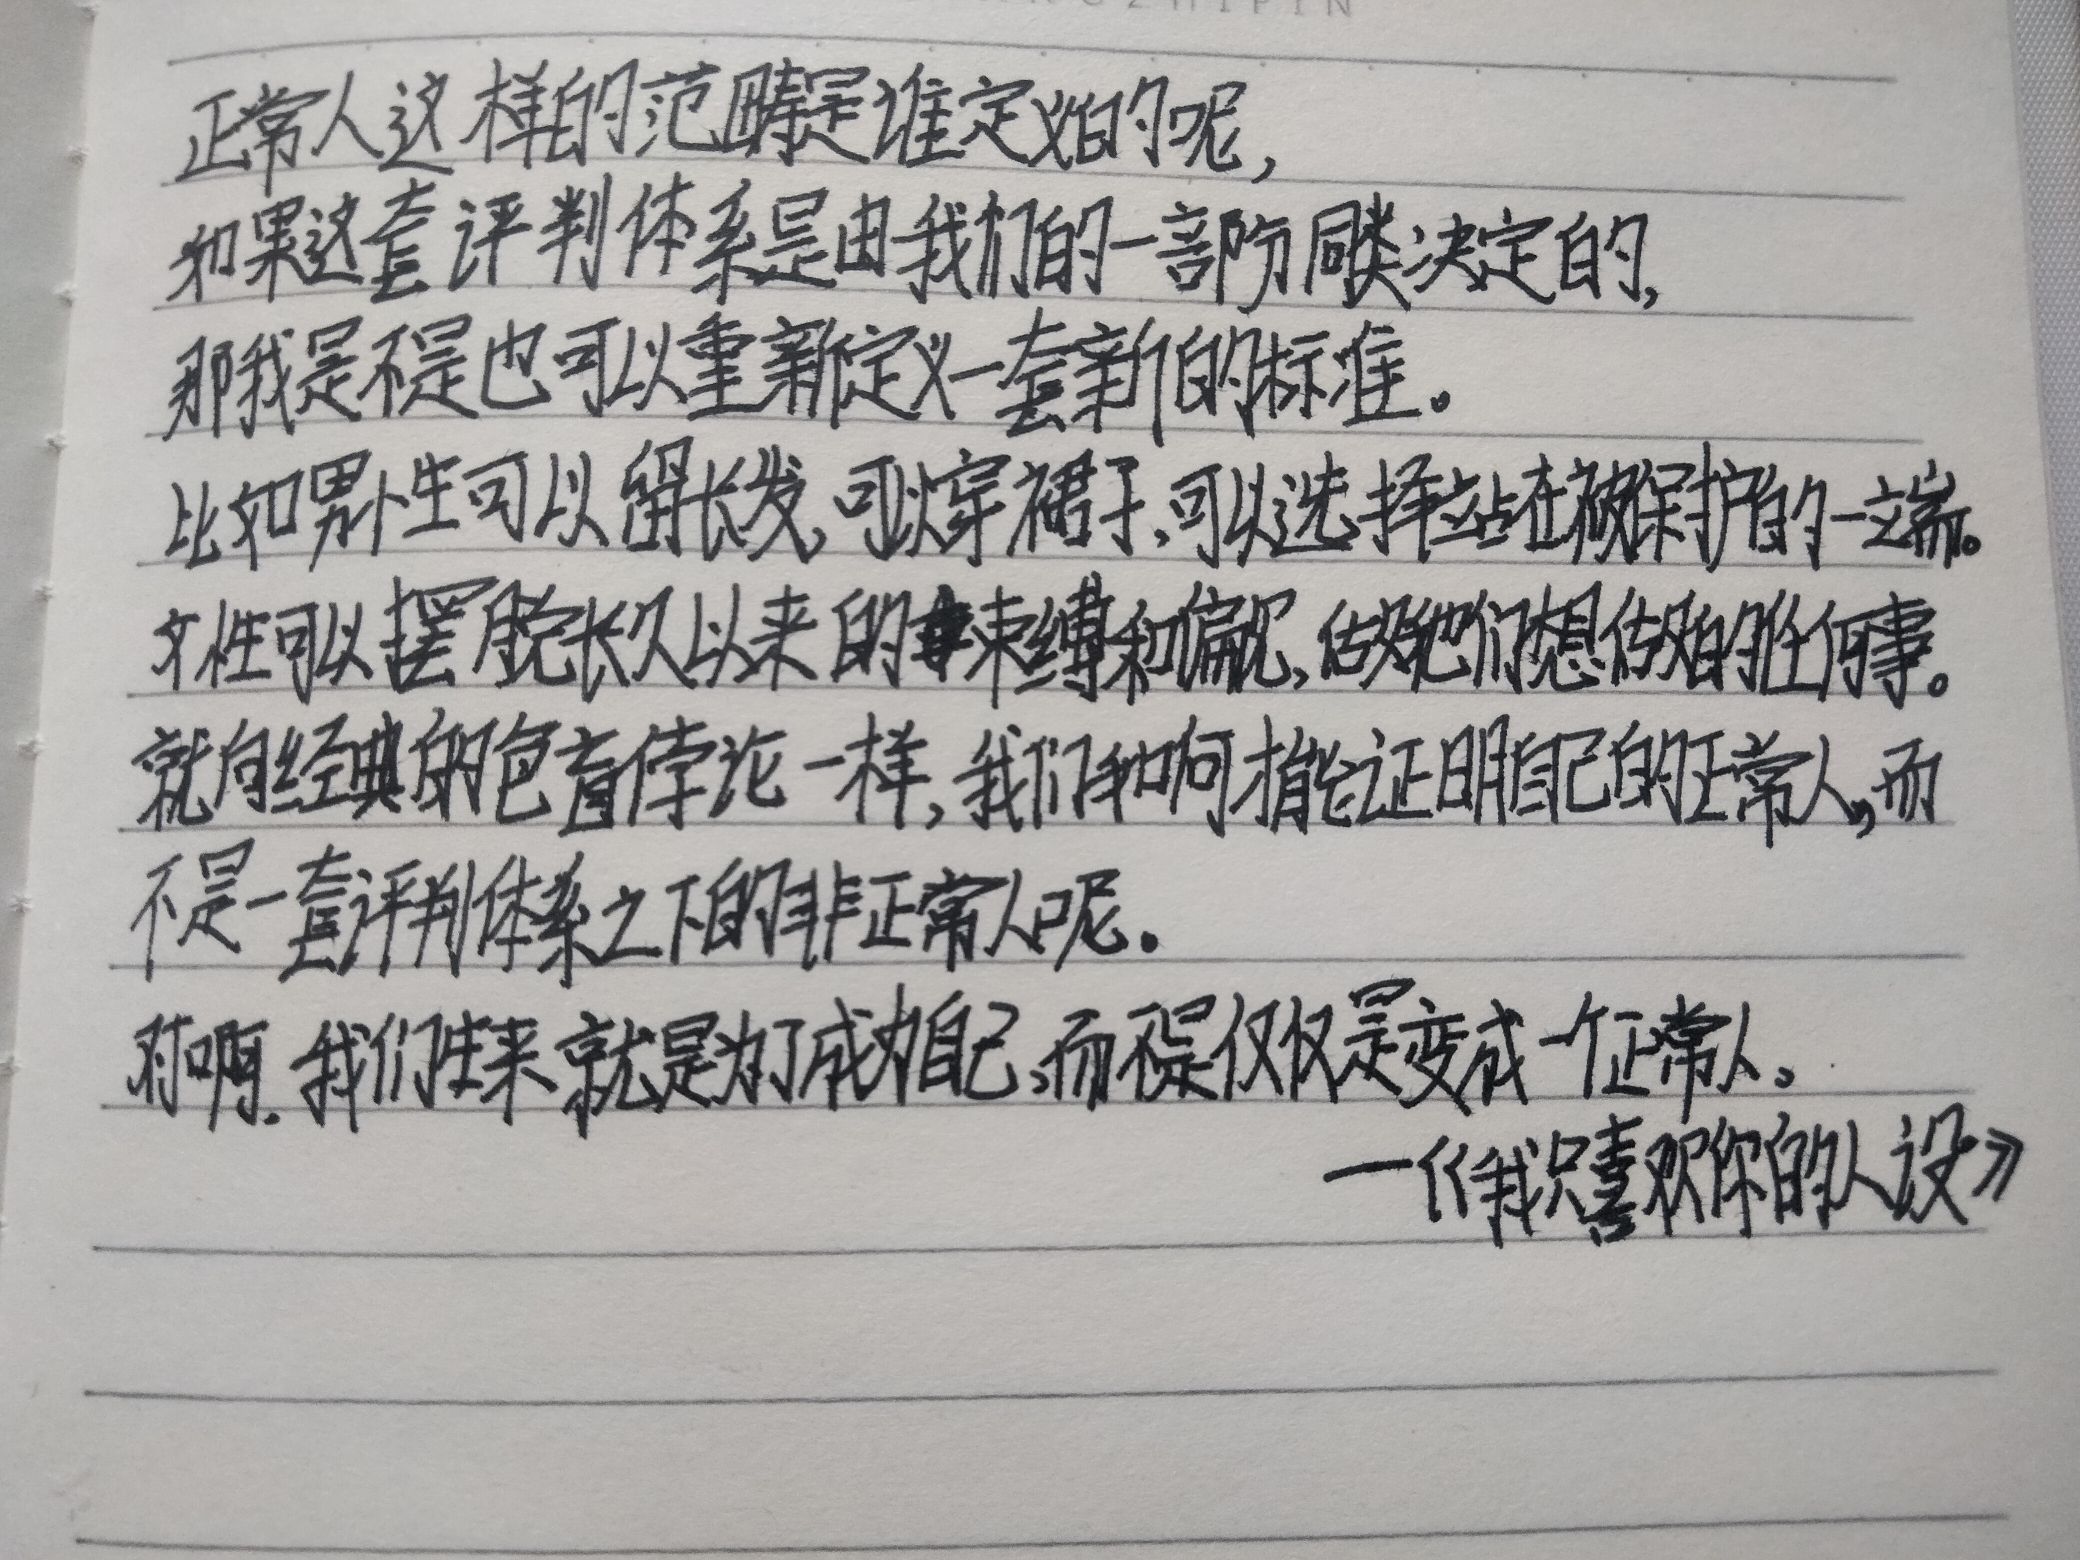 正常人这样的范畴是谁定义的呢,
如果这套评判体系是由我们的一部分同类决定的,
那我是不是也可以重新定义一套新的标准。
比如男性可以留长发、可以穿裙子、可以选择站在被保护的一端。
女性可以摆脱长久以来的束缚和偏见、做她们想做的任何事。
就向经典的色盲悖论一样,我们如何才能证明自己的正常人,而
不是一套评判体系之下的非正常人呢。
对啊.我们生来就是为了成为自己、而不是仅仅是变成一个正常人。
—《我只喜欢你的人设》